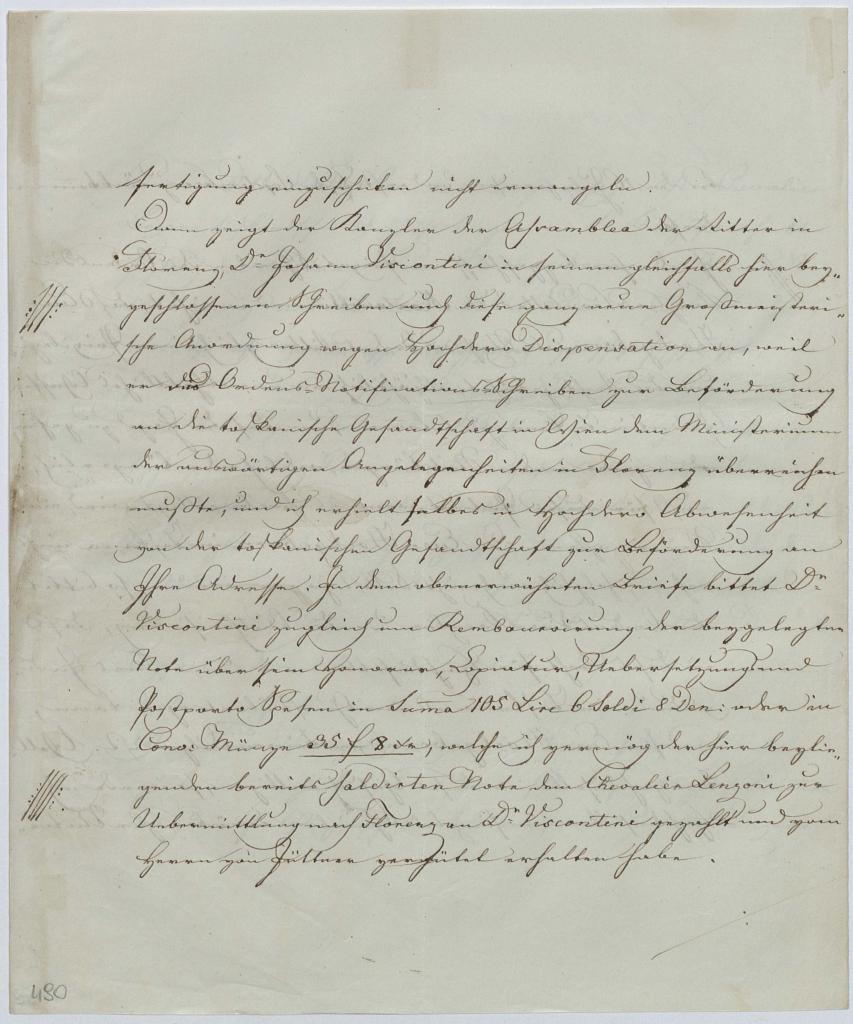 fertigung einzuschicken nicht ermangeln.
Dann zeigt der Kanzler der Assamblea der Ritter in
Florenz, Dr Johann Viscontini in seinem gleichfalls hier bey„
geschlossenen Schreiben auch diese ganz neue Großmeisteri„
sche Anordnung wegen Hochdero Dispensation an, weil
er das Ordens-Notifications-Schreiben zur Beförderung
an die toskanische Gesandtschaft in Wien dem Ministerium
der auswärtigen Angelegenheiten in Florenz überreichen
mußte, und ich erhielt selbes in Hochdero Abwesenheit
von der toskanischen Gesandtschaft zur Beförderung an
Ihre Adresse. In dem obenerwähnten Briefe bittet Dr
Viscontini zugleich um Remboursirung der beygelegten
Note über sein Honorar, Copiatur, Uebersetzungs und
Postporto Spesen in Suma 105 Lire 6 Soldi 8 Den: oder in
Conv: Münze 35 f 8 xr, welche ich vermög der hier beylie„
genden bereits saldirten Note dem Chevalier Lenzoni zur
Uebermittlung nach Florenz an Dr Viscontini gezahlt und vom
Herrn von Jüttner vergütet erhalten habe.
490